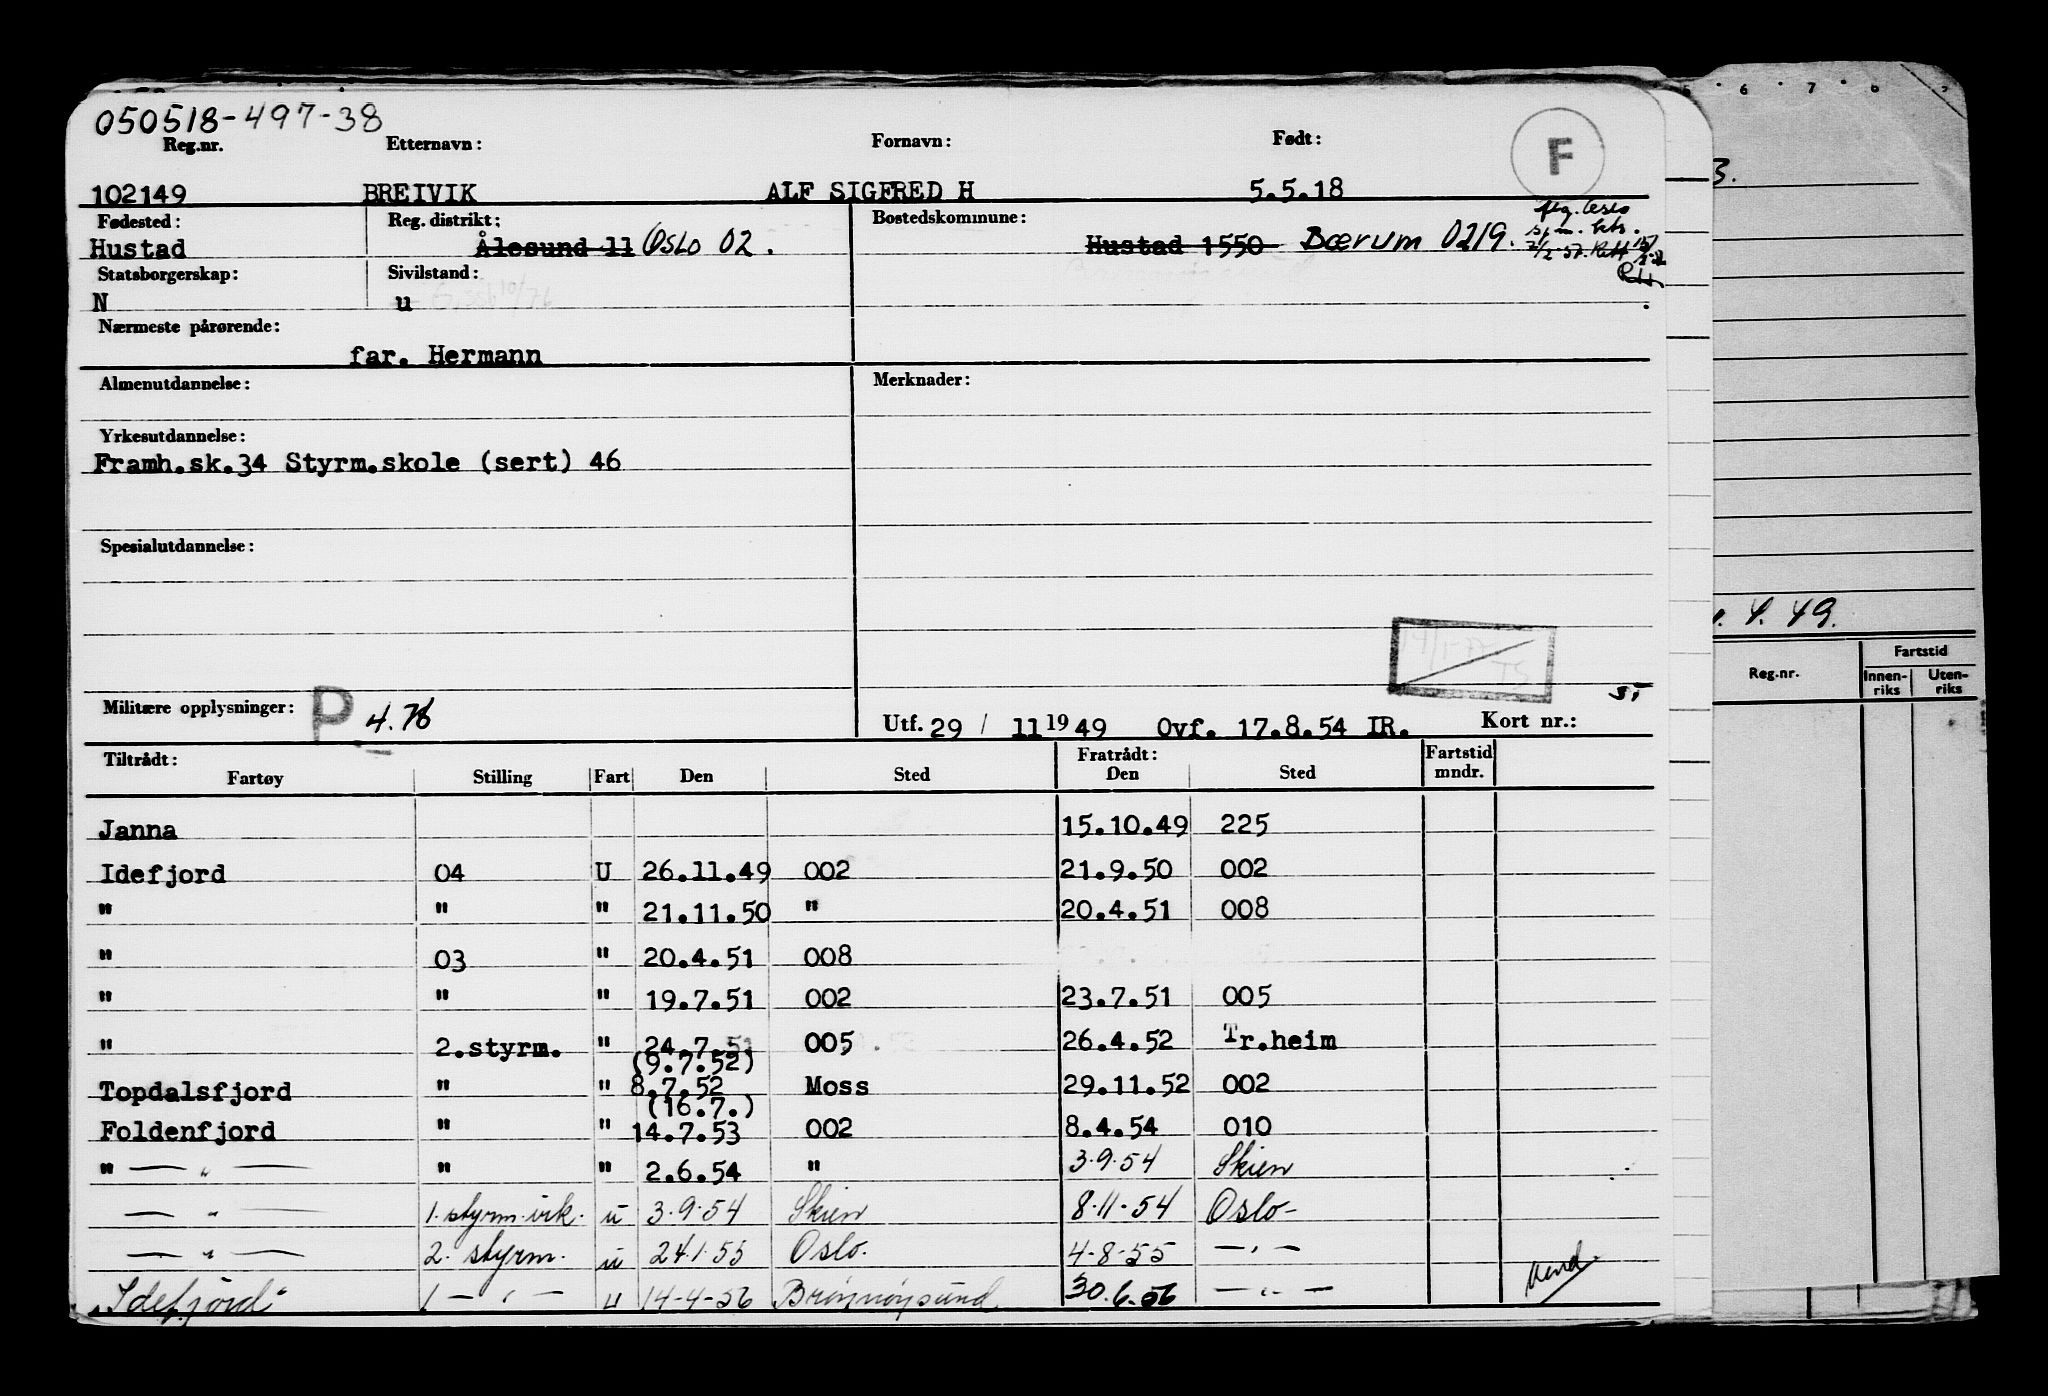 050518-497-38
Reg.nr. Etternavn: Fornavn: Født: F
102149 BREIVIK ALF SIGFRED H 5.5.18
Fødested: Reg. distrikt: Bostedskommune:
Hustad Ålesund 11 Oslo 02. Hustad 1550 Bærum 0219.
Statsborgerskap: Sivilstand:
N u
Nærmeste pårørende:
far. Hermann
Almenutdannelse: Merknader:
Yrkesutdannelse:
Framh.sk.34 Styrm.skole (sert) 46
Spesialutdannelse:
Militære opplysninger: P 4.76 Utf. 29 / 11 1949 Ovf. 17.8.54 IR. Kort nr.:
Tiltrådt: Fratrådt: Fartstid
Fartøy Stilling Fart Den Sted Den Sted mndr.
Janna 15.10.49 225
Idefjord 04 U 26.11.49 002 21.9.50 002
" " " 21.11.50 " 20.4.51 008
" 03 " 20.4.51 008
" " " 19.7.51 002 23.7.51 005
" 2.styrm. " 24.7.51 005 26.4.52 Tr.heim
(9.7.52)
Topdalsfjord " " 8.7.52 Moss 29.11.52 002
(16.7.)
Foldenfjord " " 14.7.53 002 8.4.54 010
" — " — " " 2.6.54 " 3.9.54 Skien
— " — 1. styrm. vik. u 3.9.54 Skien 8.11.54 Oslo-
— " — 2. styrm. u 24.1.55 Oslo. 4-8-55 — " —
"Idefjord" 1 — " — u 14-4-56 Brønnøysund 30.6.56 — " —
Vend
6 7 8
3.
4.49.
Reg.nr. Fartstid
Innen-riks Uten-riks